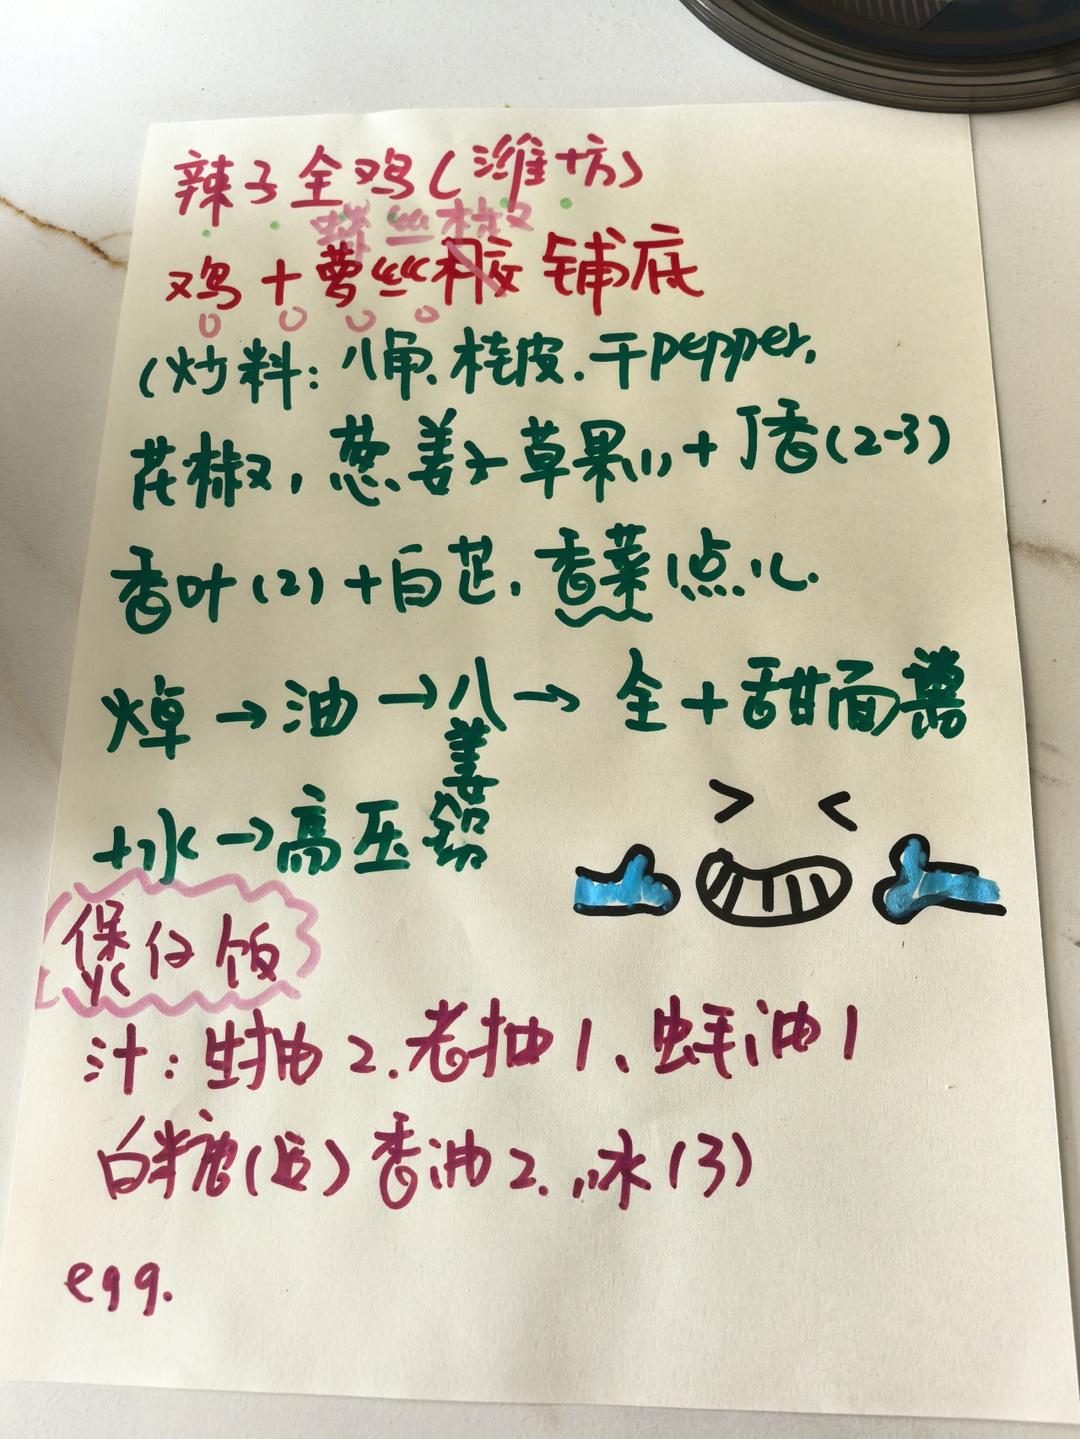 辣子全鸡(潍坊)
螺丝椒
鸡+萝丝椒 铺底
(炒料:八角、桂皮.干pepper,
花椒,葱、姜+草果(1)+丁香(2-3)
香叶(2)+白芷,香菜1点儿.
焯→油→八→全+甜面酱
姜
+水→高压锅
煲仔饭
汁:生抽2.老抽1、蚝油1
白糖(后)香油2.水(3)
egg.